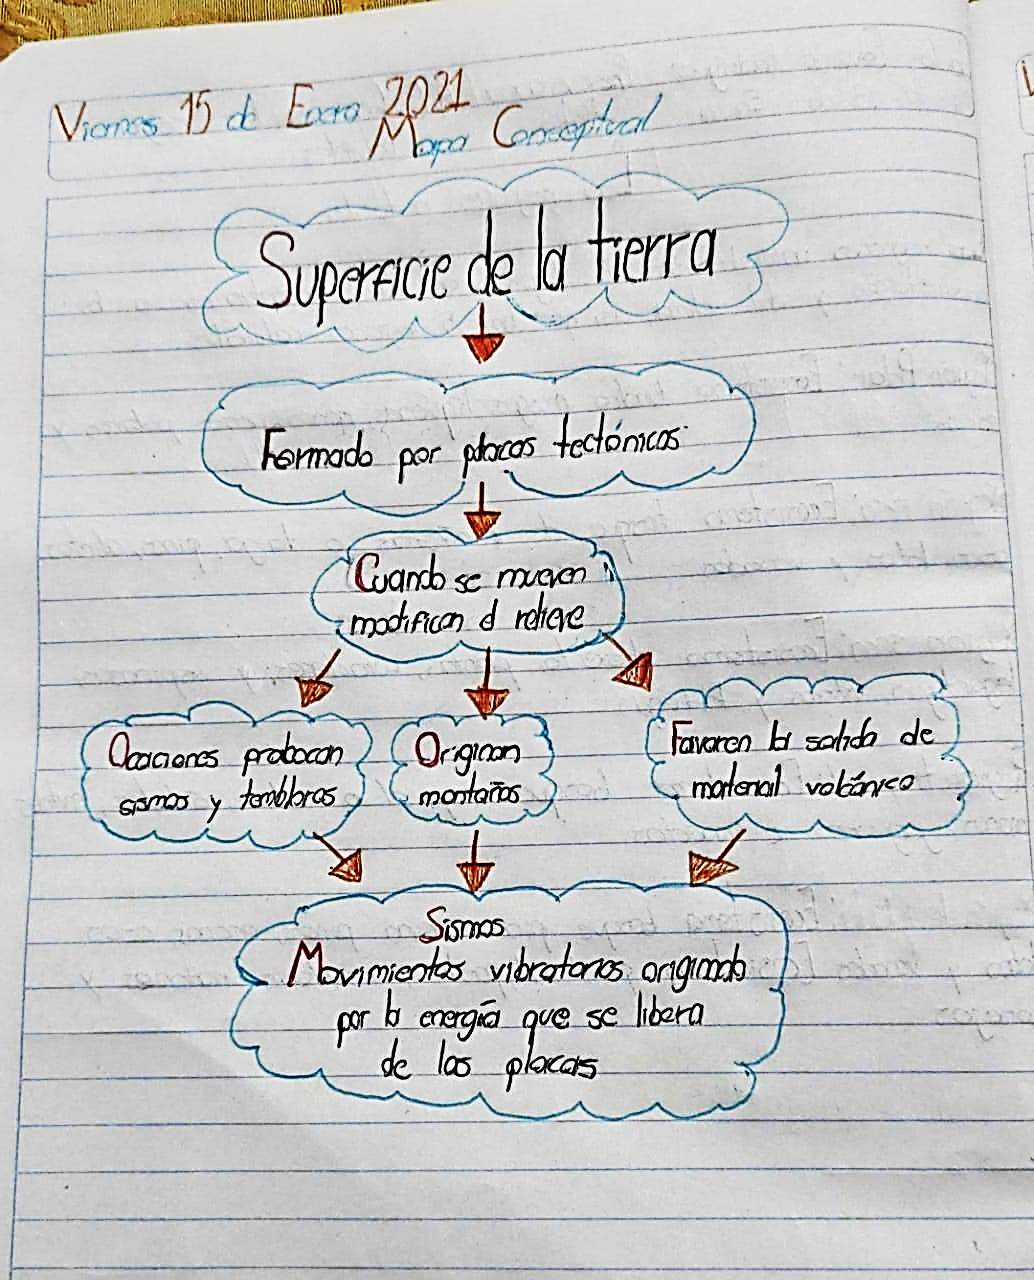 Viernes 15 de Enero 2021
Mapa Conceptual
Superficie de la tierra
Formado por placas tectónicas
Cuando se mueven
modifican el relieve
Ocaciones probocan
sismos y temblores
Originan
montañas
Favoren la salida de
material volcánico
Sismos
Movimientos vibratorios originado
por la energía que se libera
de las placas